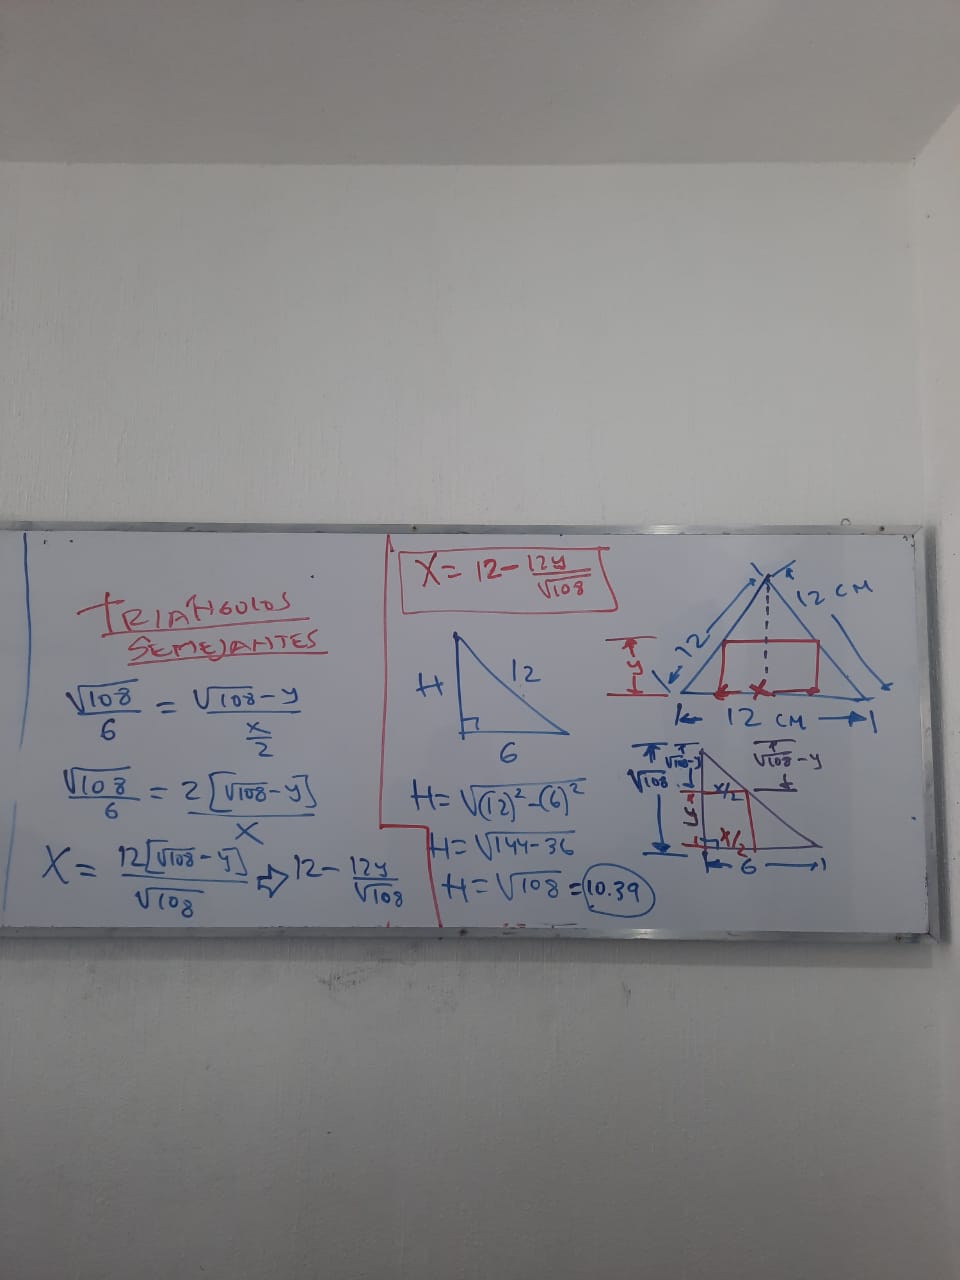 TRIANGULOS
SEMEJANTES
√108/6 = √108-y / x/2
√108/6 = 2[√108-y]/X
X= 12[√108-y]/√108 ⇒ 12- 12y/√108
X= 12- 12y/√108
H
12
6
H= √(12)²-(6)²
H= √144-36
H= √108 = 10.39
12
12 CM
y
X
12 CM
√108
√108-y
√108-y
x/2
y
x/2
6